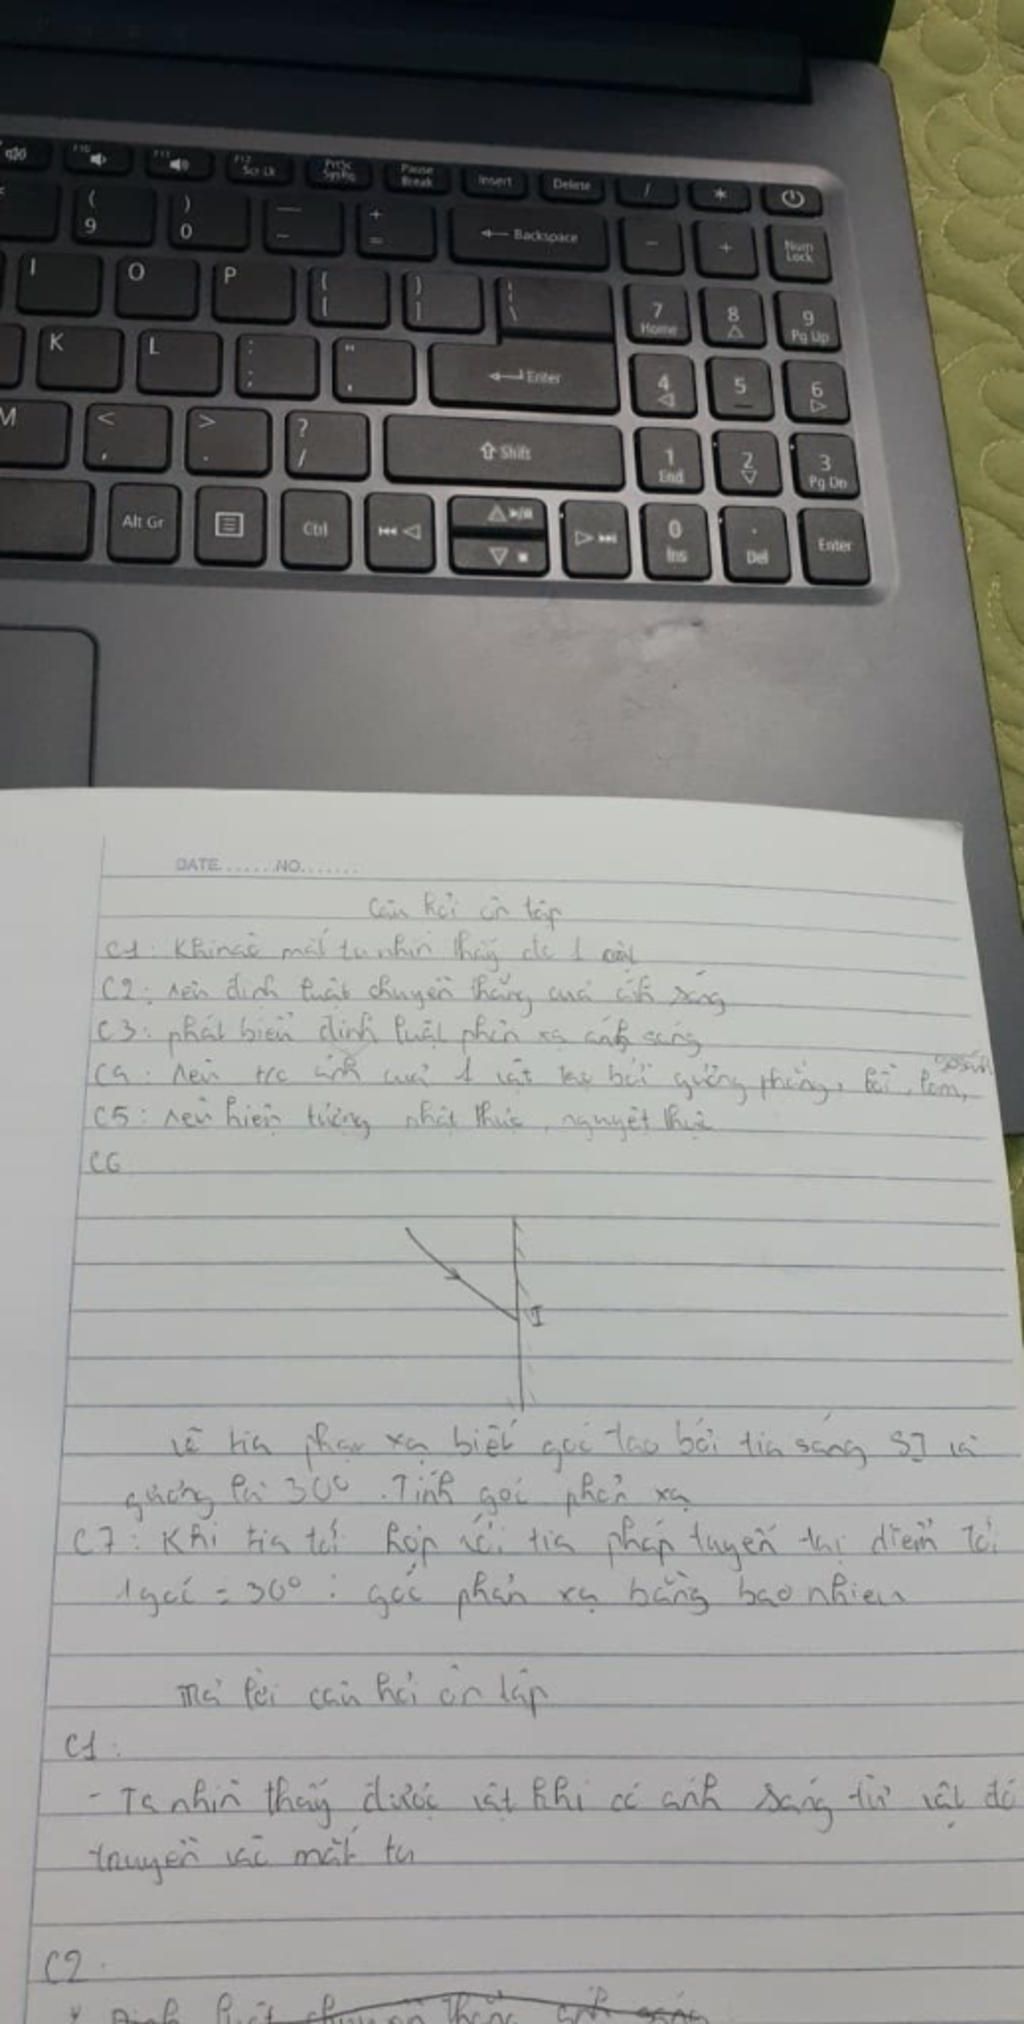 F10
F11
F12 Scr Lk
PrtSc SysRq
Pause Break
Insert
Delete
/
*
( 9
) 0
— –
+ =
← Backspace
-
+
Num Lock
I
O
P
{ [
} ]
| \
7 Home
8
9 Pg Up
K
L
: ;
" '
Enter
4
5
6
M
< ,
> .
? /
Shift
1 End
2
3 Pg Dn
Alt Gr
Ctrl
0 Ins
. Del
Enter
DATE......NO.......
Câu hỏi ôn tập
C1: Khi nào mắt ta nhìn thấy đc 1 vật
C2: nêu định luật chuyền thẳng của ánh sáng
C3: phát biểu định luật phản xạ ánh sáng
so sánh
C4: nêu t/c ảnh của 1 vật tạo bởi gương phẳng, lồi, lõm,
C5: nêu hiện tượng nhật thực, nguyệt thực
C6
I
vẽ tia phản xạ biết góc tạo bởi tia sáng SI và
gương là 30°. Tính góc phản xạ
C7: Khi tia tới hợp với tia pháp tuyến tại điểm tới
1 góc = 30° : góc phản xạ bằng bao nhiêu
Trả lời câu hỏi ôn tập
C1:
- Ta nhìn thấy được vật khi có ánh sáng từ vật đó
truyền vào mắt ta
C2: